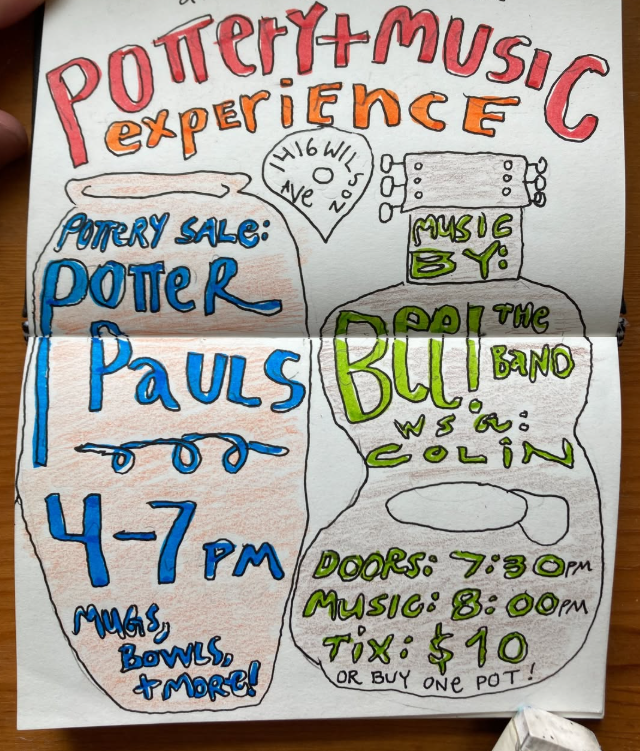 POTTERY+MUSIC
experience
1416 WILSON
AVE
POTTERY SALE:
POTTER
PAULS
4-7 PM
MUGS,
BOWLS,
+ MORE!
MUSIC
BY:
Bee! THE
BAND
W S G:
COLIN
DOORS: 7:30PM
MUSIC: 8:00PM
TIX: $10
OR BUY ONE POT!